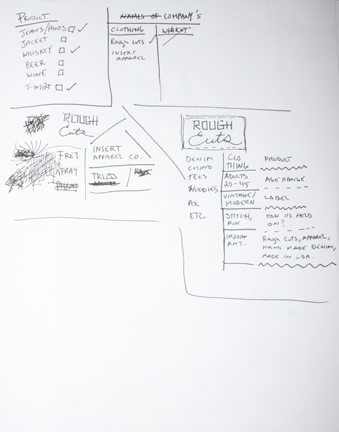 PRODUCT
JEANS/PANTS
JACKET
WHISKEY
BEER
WINE
T-SHIRT
NAMES OF COMPANY'S
CLOTHING
WHISKEY
ROUGH CUTS
INSERT
APPAREL
ROUGH
Cuts
FREY
INSERT
APPAREL CO.
ROUGH
Cuts
DENIM
TEES
HOODIES
AX
ETC
CLO
THING
ADULTS
20-45
VINTAGE/
MODERN
STITCH,
PIN
IMPORT
ANT.
PRODUCT
AGE RANGE
LABEL
HOW ITS HELD
ON?
ROUGH CUTS, APPAREL,
HAND MADE DENIM,
MADE IN USA.